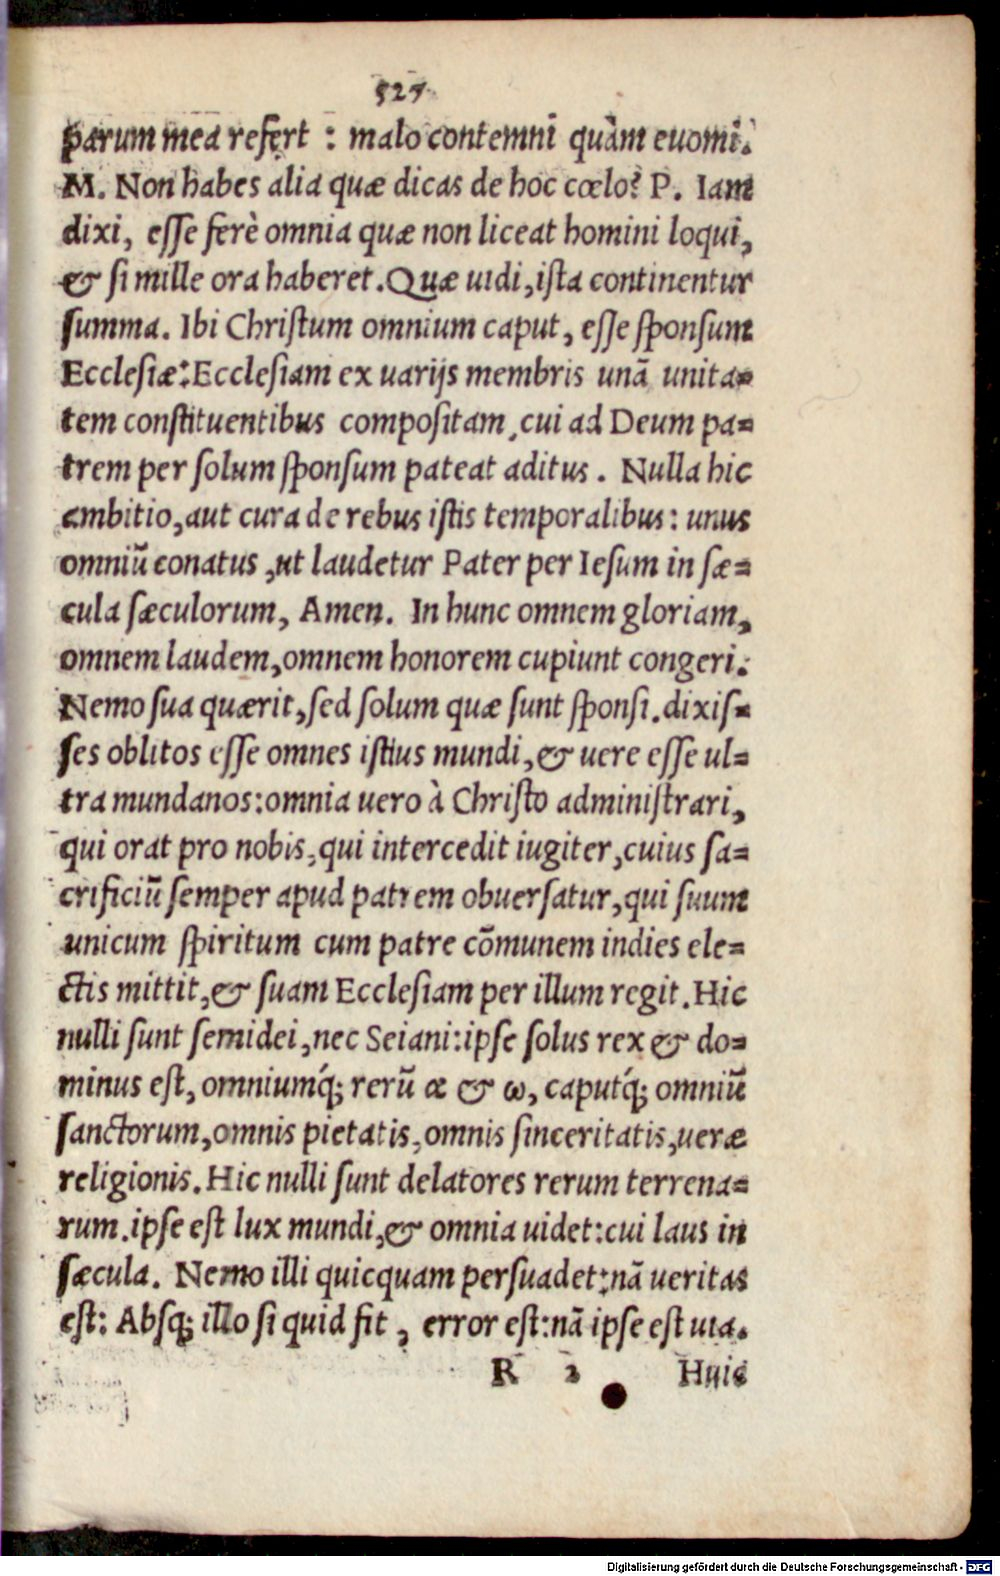 525
parum mea refert : malo contemni quàm euomi.
M. Non habes alia quæ dicas de hoc cœlo? P. Iam
dixi, esse ferè omnia quæ non liceat homini loqui,
& si mille ora haberet. Quæ uidi, ista continentur
summa. Ibi Christum omnium caput, esse sponsum
Ecclesiæ: Ecclesiam ex uarijs membris unã unita=
tem constituentibus compositam, cui ad Deum pa=
trem per solum sponsum pateat aditus. Nulla hic
ambitio, aut cura de rebus istis temporalibus: unus
omniũ conatus, ut laudetur Pater per Iesum in sæ=
cula sæculorum, Amen. In hunc omnem gloriam,
omnem laudem, omnem honorem cupiunt congeri.
Nemo sua quærit, sed solum quæ sunt sponsi. dixis=
ses oblitos esse omnes istius mundi, & uere esse ul=
tra mundanos: omnia uero à Christo administrari,
qui orat pro nobis, qui intercedit iugiter, cuius sa=
crificiũ semper apud patrem obuersatur, qui suum
unicum spiritum cum patre cõmunem indies ele=
ctis mittit, & suam Ecclesiam per illum regit. Hic
nulli sunt semidei, nec Seiani: ipse solus rex & do=
minus est, omniumq́; rerũ α & ω, caputq́; omniũ
sanctorum, omnis pietatis, omnis sinceritatis, ueræ
religionis. Hic nulli sunt delatores rerum terrena=
rum. ipse est lux mundi, & omnia uidet: cui laus in
sæcula. Nemo illi quicquam persuadet: nã ueritas
est: Absq; illo si quid fit, error est: nã ipse est uia.
R 2 Huis
Digitalisierung gefördert durch die Deutsche Forschungsgemeinschaft - DFG